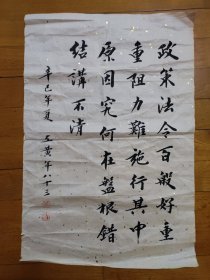 政策法令百般好重
重阻力難施行其中
原因究何在盤根錯
結講不清
辛巳年夏 文黄年八十三